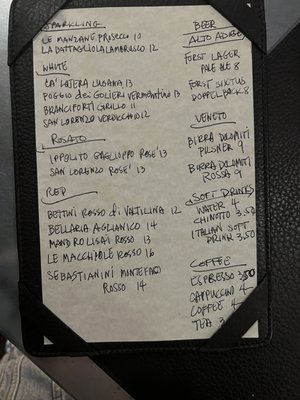 SPARKLING
LE MANZANE PROSECCO 10
LA BATTAGLIOLA LAMBRUSCO 12
WHITE
CA' LOJERA LUGANA 13
POGGIO dei GOLIERI VERMENTINO 13
BRANCIFORTI GRILLO 11
SAN LORENZO VERDICCHIO 12
ROSATO
IPPOLITO GAGLIOPPO ROSE' 13
SAN LORENZO ROSE' 13
RED
BETTINI ROSSO di VALTILINA 12
BELLARIA AGLIANICO 14
MANDROLISAI ROSSO 13
LE MACCHIOLE ROSSO 16
SEBASTIANINI MONTEFALCO
ROSSO 14
BEER
ALTO ADIGE
FORST LAGER
PALE ALE 8
FORST SIXTUS
DOPPELBOCK 8
VENETO
BIRRA DOLOMITI
PILSNER 9
BIRRA DOLOMITI
ROSSA 9
SOFT DRINKS
WATER 4
CHINOTTO 3.50
ITALIAN SOFT
DRINK 3.50
COFFEE
ESPRESSO 3.50
CAPPUCCINO 4
COFFEE 4
TEA 3